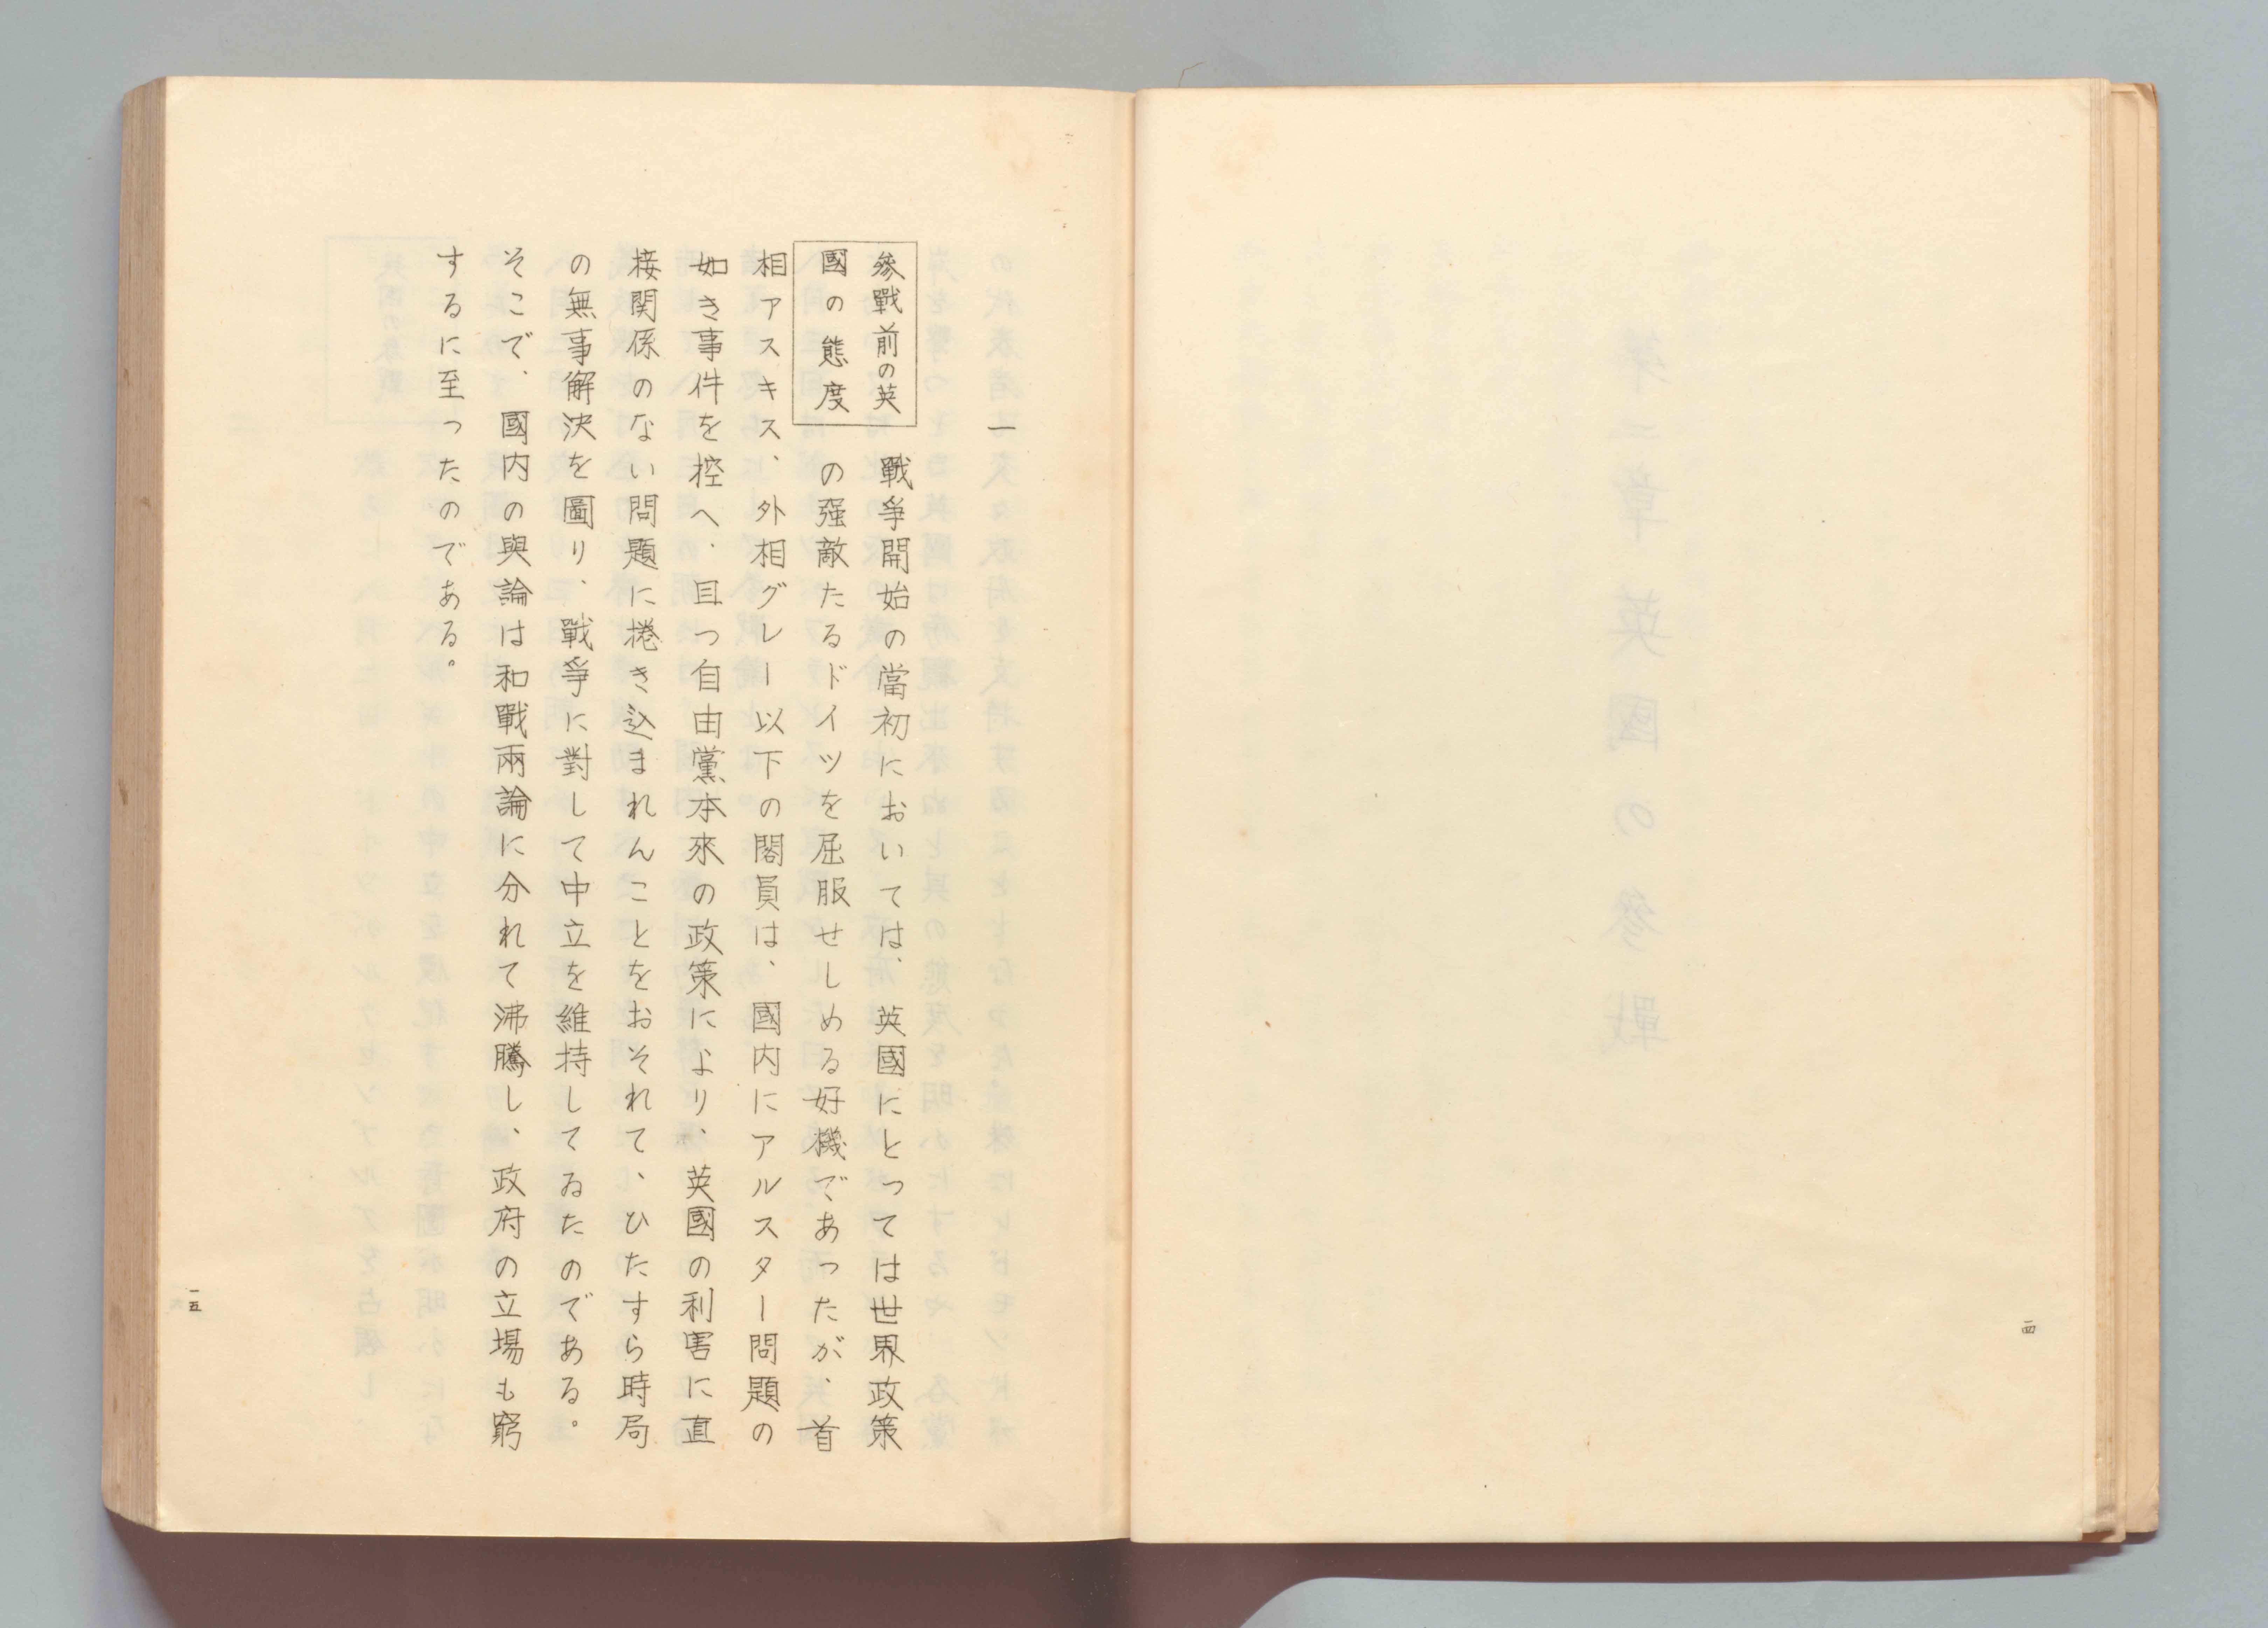 一四
一
參戰前の英
國の態度
戰爭開始の當初においては、英國にとっては世界政策
の强敵たるドイツを屈服せしめる好機であったが、首
相アスキス、外相グレー以下の閣員は、國内にアルスター問題の
如き事件を控へ、且つ自由黨本來の政策により、英國の利害に直
接関係のない問題に捲き込まれんことをおそれて、ひたすら時局
の無事解決を圖り、戰爭に對して中立を維持してゐたのである。
そこで、國内の與論は和戰兩論に分れて沸騰し、政府の立場も窮
するに至ったのである。
一五